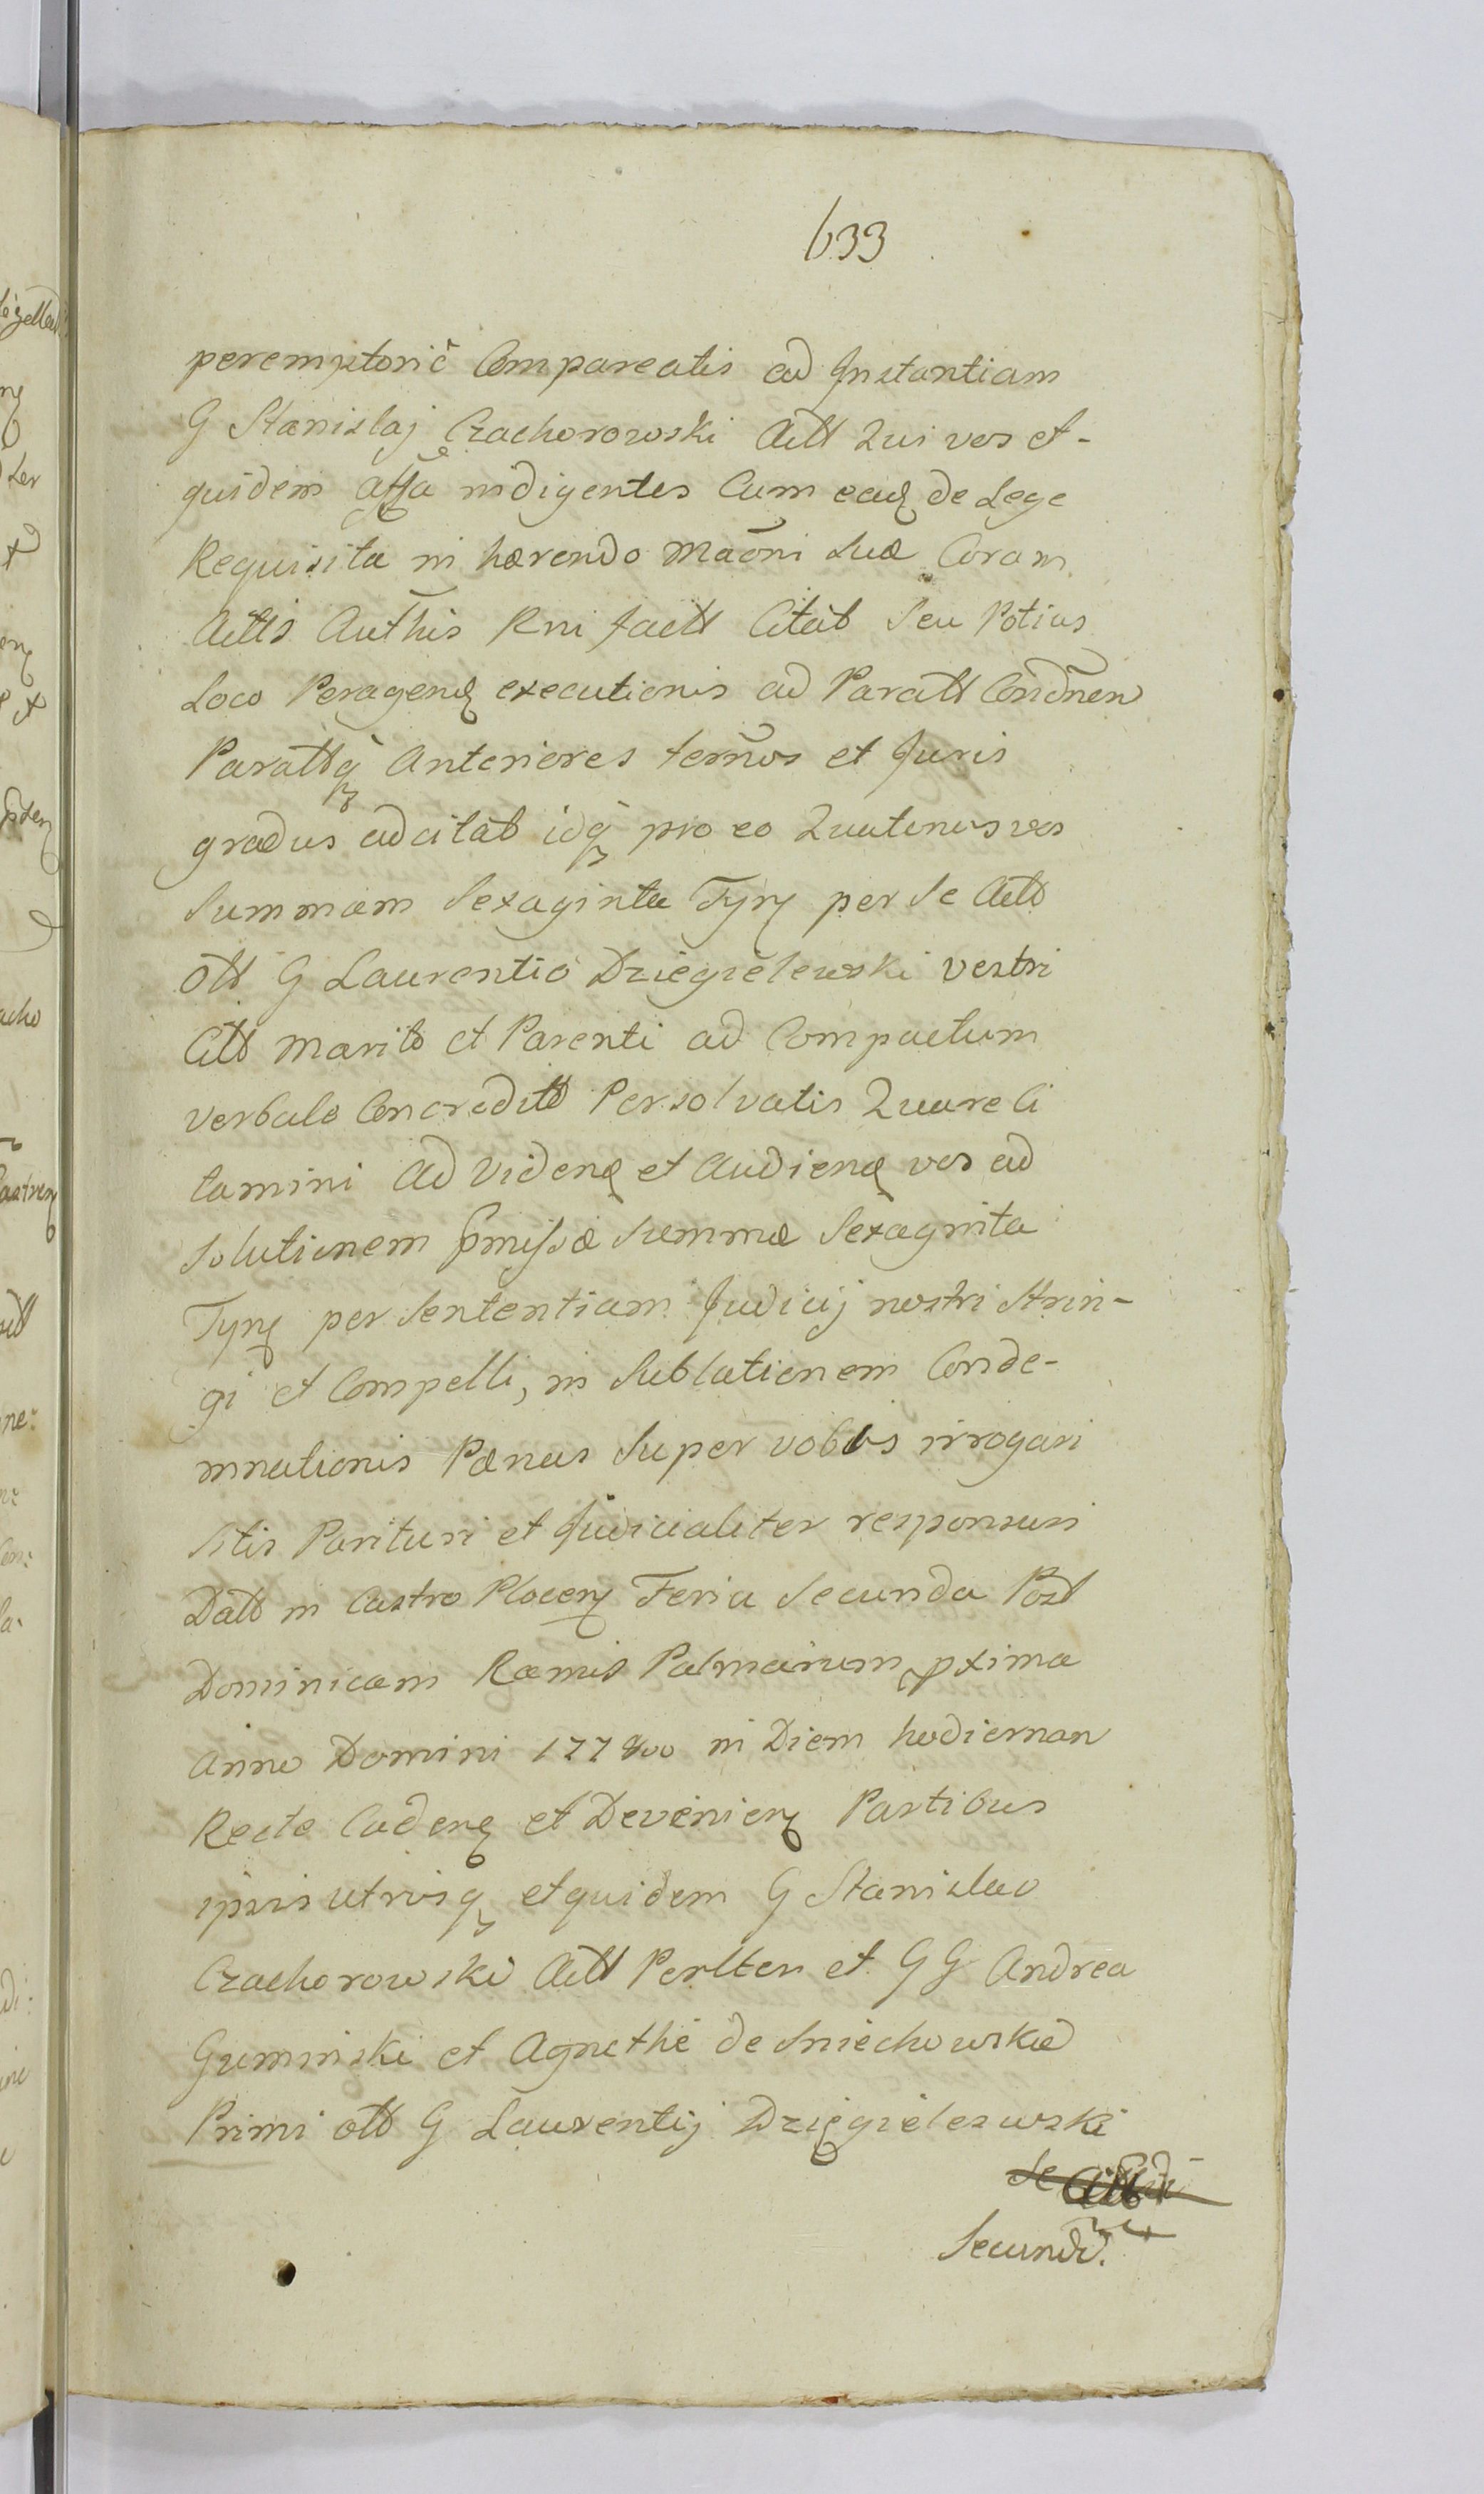 633
peremptorie Compareatis ad Instantiam
G Stanislaj Czachorowski Actt Qui vos et-
quidem assa indigentes Cum eadq de Lege
Requisita in hærendo maõni suæ Coram
Actis Authis Rni factt Citat Seu Potius
Loco Peragenq executionis ad Paratt Condnen
Parattqz anteriores terños et Juris
gradus adcitat idqz pro eo Quatenus vos
Summam Sexaginta Tynf per se Actt
ott G Laurentio Dziegielewski vestri
Citt Marito et Parenti ad Compactum
verbale Concreditt Persolvatis Quare Ci
tamini ad Videnq et Audienq vos ad
Solutionem pmissæ Summæ Sexaginta
Tynf per Sententiam Judicij nostri Strin-
gi et Compelli, in Sublationem Conde-
mnationis Pænas Super vobis irrogari
sitis Parituri et Judicialiter responsuri
Datt in Castro Plocen Feria Secunda Post
Dominicam Ramis Palmarum pxima
Anno Domini 177800 in Diem hodiernan
Recte Cadenq et Devenien Partibus
ipsis utrisqz et quidem G Stanislao
Czachorowski Actt Perltter et G G Andrea
Guminski et Agnethe de Sniechowskie
Primi ott G Laurentij Dzięgielewski
Secundi.